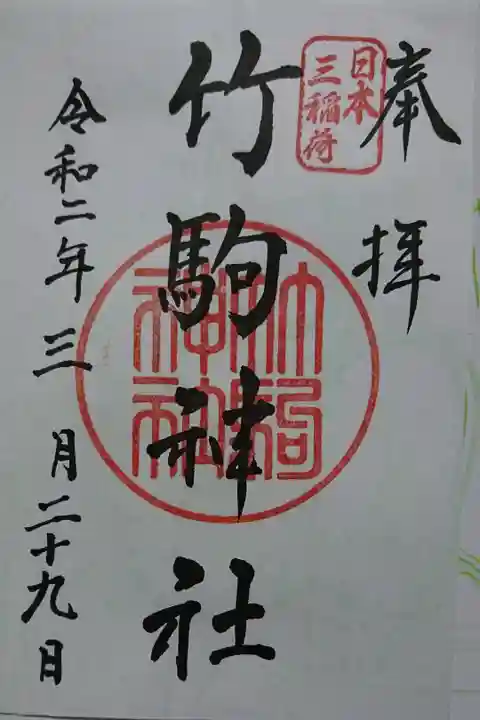 奉拝
日本
三稲荷
竹駒神社
竹駒
神社
令和二年三月二十九日